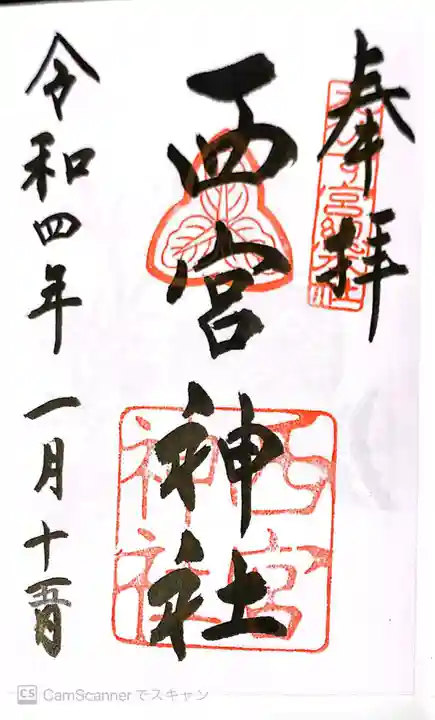 奉拝
西宮神社
令和四年 一月十五日
西宮神社
CS CamScanner でスキャン